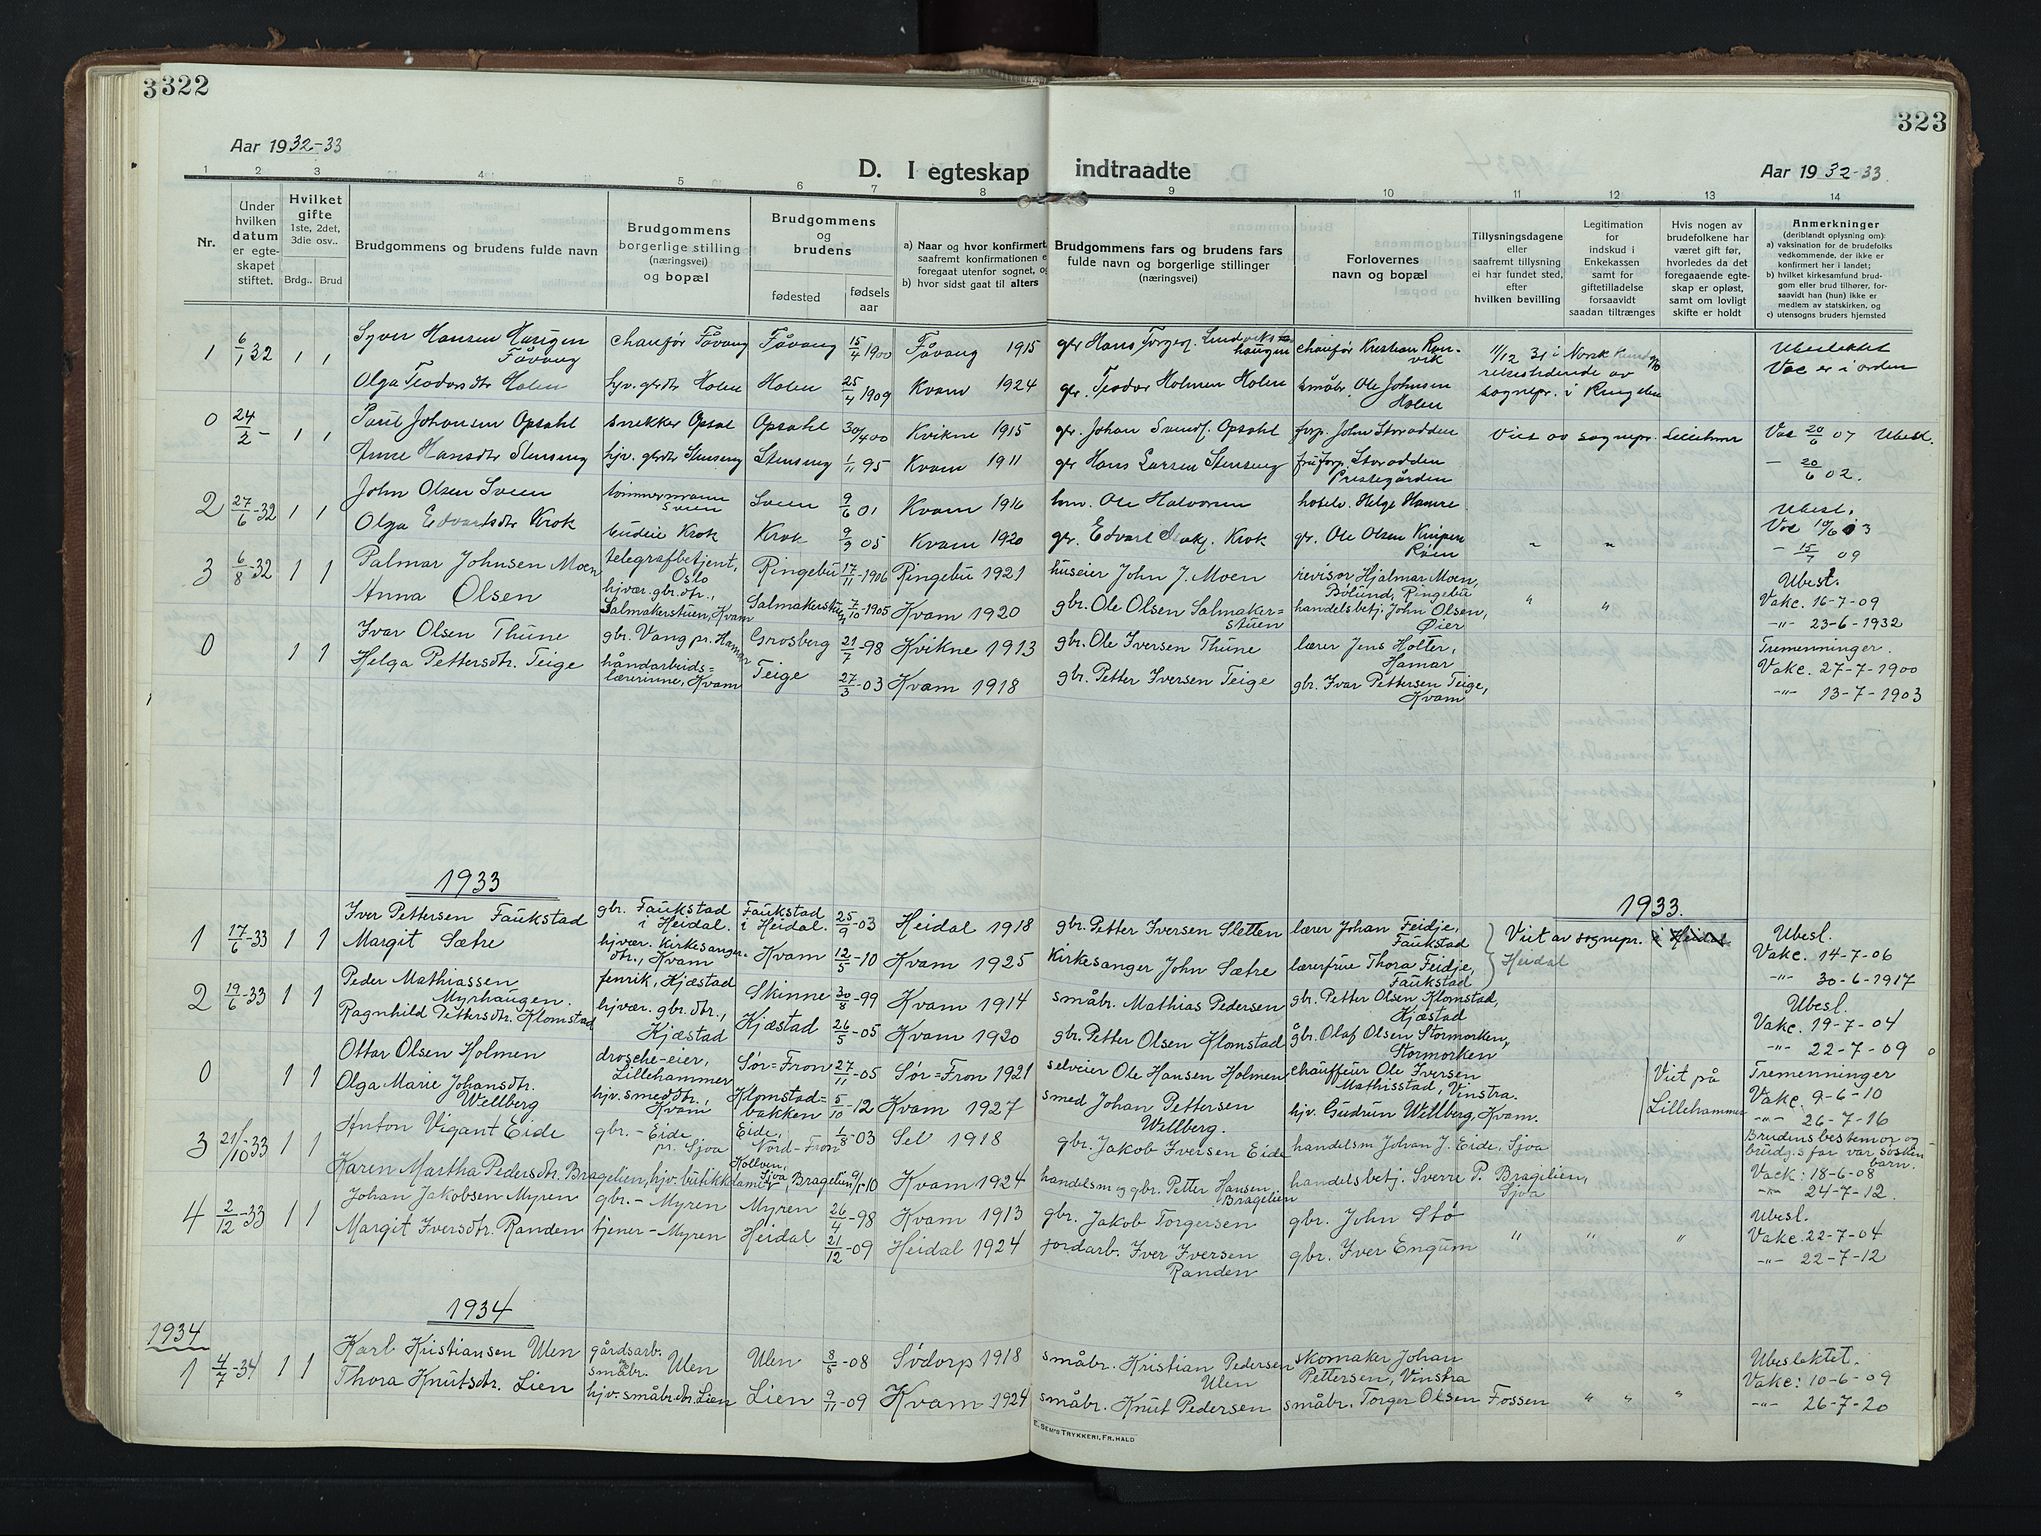 3322
323
Aar 1932-33
Aar 1932-33.
D. I egteskap indtraadte
1 2 3 4 5 6 7 8 9 10 11 12 13 14
Nr.
Under hvilken datum er egteskapet stiftet.
Hvilket gifte 1ste, 2det, 3die osv..
Brdg.. Brud
Brudgommens og brudens fulde navn
Brudgommens borgerlige stilling (næringsvei) og bopæl
Brudgommens og brudens
fødested
fødsels aar
a) Naar og hvor konfirmert
saafremt konfirmationen e
foregaat utenfor sognet, og
b) hvor sidst gaat til alters
Brudgommens fars og brudens fars
fulde navn og borgerlige stillinger
(næringsvei)
Forlovernes
navn og bopæl
Tillysningsdagene
eller
saafremt tillysning
ei har fundet sted,
efter
hvilken bevilling
Legitimation
for
indskud i
Enkekassen
samt for
giftetilladelse
forsaavidt
saadan tiltrænges
Hvis nogen av
brudefolkene har
været gift før,
hvorledes da det
foregaaende egte-
skap er opløst,
samt om lovligt
skifte er holdt
Anmerkninger
(deriblandt oplysning om):
a) vaksination for de brudefolks
vedkommende, der ikke er
konfirmert her i landet;
b) hvilket kirkesamfund brud-
gom eller brud tilhører, for-
saavidt han (hun) ikke er
medlem av statskirken, og
c) utensogns bruders hjemsted
1 6/1 32 1 1 Syver Hansen Haugen Fåvang chauför Fåvang Fåvang 15/4 1900 Fåvang 1915 chauför Kristian Ubeslektet
Olga Teodorsdtr Holen hjv. gbrdtr Holen Holen 25/4 1909 Kvam 1924 gbr. Teodor Holmen Holen småbr. Ole Johnsen Holen sognepr. i Ringebu Vac er i orden
0 24/2 - 1 1 Paul Johansen Opsahl snekker Opsal Opsahl 30/4 00 Kvikne 1915 gbr. Johan Svends. Opsahl forp. John Storødden Viet av sognepr. Lillehmr Vac 20/6 07 Ubesl.
Anne Hansdtr Stenseng hjv. gbrdtr Stenseng Stenseng 1/11 95 Kvam 1911 gbr Hans Larsen Stenseng fru forp. Storødden Prestegården - 20/6 02.
2 27/6-32 1 1 John Olsen Sveen tömmermann Sveen Sveen 9/6 01 Kvam 1916 Ole Halvorsen Helge Hamre Ubesl.
Olga Edvartsdtr Krok budeie Krok Krok 9/9 05 Kvam 1920 Krok gbr. Ole Olsen - 15/7 09
3 6/8-32 1 1 Palmar Johnsen Moen telegrafbetjent, Oslo Ringebu 17/11-1906 Ringebu 1921 huseier John J. Moen revisor Hjalmar Moen, Bölund, Ringebu Ubesl.
Anna Olsen hjvær. gbr. dtr., Salmakerstuen, Kvam Salmakerstuen 7/10-1905 Kvam 1920 gbr. Ole Olsen Salmaker=stuen handelsbetj. John Olsen, Øier " " Vakc. 16-7-09
-"- 23-6-1932
0 1 1 Ivar Olsen Thune gbr. Vang pr. Hamar Grosberg 21/7-98 Kvikne 1913 gbr. Ole Iversen Thune lærer Jens Holter, Hamar Tremenninger.
Helga Pettersdtr. Teige håndarbeids=lærerinne, Kvam Teige 27/3-03 Kvam 1918 gbr. Petter Iversen Teige gbr. Ivar Pettersen Teige, Kvam Vakc. 27-7-1900
-"- 13-7-1903
1933
1933.
1 17/6-33 1 1 Iver Pettersen Faukstad gbr. Faukstad i Heidal. Faukstad i Heidal. 25/9-03 Heidal 1918 gbr. Petter Iversen Sletten lærer Johan Feidje, Faukstad Viet av sognepr. i Heidal Ubesl.
Margit Sætre hjvær. kirkesanger-dtr., Kvam Kvam 12/5-10 Kvam 1925 Kirkesanger John Sætre lærerfrue Thora Feidje, Faukstad Heidal Vakc. 14-7-06
-"- 30-6-1917
2 19/6-33 1 1 Peder Mathiassen Myrhaugen. fenrik, Kjæstad Skinne 30/8-99 Kvam 1914 småbr. Mathias Pedersen gbr. Petter Olsen Klomstad, Kjæstad Ubesl.
Ragnhild Pettersdtr. Klomstad hjvær. gbr. dtr., Kjæstad Kjæstad 26/5-05 Kvam 1920 gbr. Petter Olsen Klomstad gbr. Olaf Olsen Stormorken, Stormorken Vakc. 19-7-04
-"- 22-7-09
0 1 1 Ottar Olsen Holmen drosche-eier, Lillehammer Sør=Fron 27/11-05 Sør=Fron 1921 selveier Ole Hansen Holmen chauffeur Ole Iversen Mathisstad, Vinstra. Viet på Tremenninger
Olga Marie Johansdtr. Wellberg hjv. smeddtr., Kvam Klomstad=bakken 5/10-12 Kvam 1927 smed Johan Pettersen Wellberg. hjv. Gudrun Wellberg, Kvam. Lillehammer Vakc. 9-6-10
-"- 26-7-16
3 21/10-33 1 1 Anton Vigant Eide gbr. - Eide pr. Sjoa Eide, Nord-Fron 1/8-03 Sel 1918 gbr. Jakob Iversen Eide handelsm Johan J. Eide, Sjoa Brudens bestemor og brudg.s far var søskenbarn.
Karen Martha Pedersdtr. Bragelien, hjv. butikkdame, Sjoa, Bragelien 9/1-10 Kvam 1924 handelsm og gbr. Petter Hansen Bragelien handelsbetj. Sverre P. Bragelien, Sjoa Vack: 18-6-08
-"- 24-7-12.
4 2/12-33 1 1 Johan Jakobsen Myren gbr. - Myren Myren 26/4-98 Kvam 1913 gbr. Jakob Torgersen gbr. John Stø Ubesl.
Margit Iversdtr. Randen tjener - Myren Heidal 21/12-09 Heidal 1924 jordarb. Iver Iversen Randen gbr. Iver Engum " " " Vakc. 22-7-04
-"- 22-7-12
1934
1934
1 4/7-34 1 1 Karl Kristiansen Ulen gårdsarb. og småbr. Ulen Ulen 8/5-08 Södorp 1918 småbr. Kristian Pedersen Ulen skomaker Johan Pettersen, Vinstra Ubeslektet.
Thora Knutsdtr. Lien hjv. småbr. dtr. Lien Lien 9/11-09 Kvam 1924 småbr. Knut Pedersen småbr. Torger Olsen Fossen " " " Vakc: 10-6-09
-"- 26-7-20
E. SEM'S TRYKKERI, FR.HALD